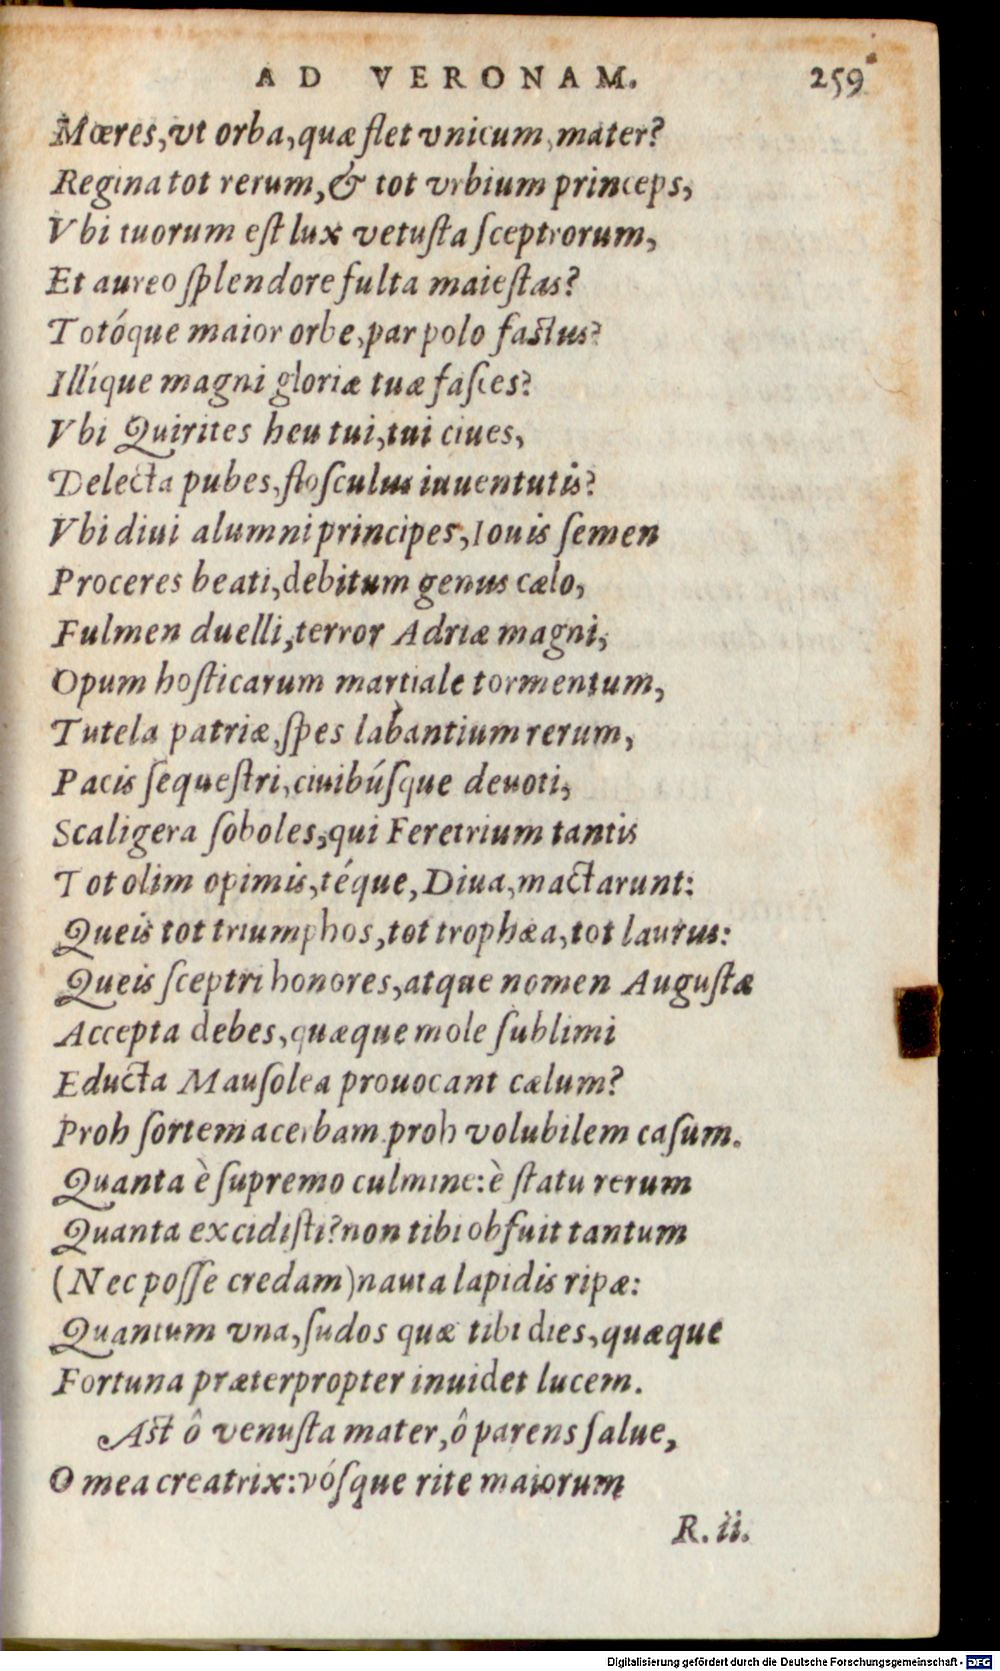 AD VERONAM. 259
Mœres, vt orba, quæ flet vnicum, mater?
Regina tot rerum, & tot vrbium princeps,
Vbi tuorum est lux vetusta sceptrorum,
Et aureo splendore fulta maiestas?
Totóque maior orbe, par polo fastus?
Illíque magni gloriæ tuæ fasces?
Vbi Quirites heu tui, tui ciues,
Delecta pubes, flosculus iuuentutis?
Vbi diui alumni principes, Iouis semen
Proceres beati, debitum genus cælo,
Fulmen duelli, terror Adriæ magni,
Opum hosticarum martiale tormentum,
Tutela patriæ, spes labantium rerum,
Pacis sequestri, ciuibúsque deuoti,
Scaligera soboles, qui Feretrium tantis
Tot olim opimis, téque, Diua, mactarunt:
Queis tot triumphos, tot trophæa, tot laurus:
Queis sceptri honores, atque nomen Augustæ
Accepta debes, quæque mole sublimi
Educta Mausolea prouocant cælum?
Proh sortem acerbam proh volubilem casum.
Quanta è supremo culmine: è statu rerum
Quanta excidisti? non tibi obfuit tantum
(Nec posse credam) nauta lapidis ripæ:
Quantum vna, sudos quæ tibi dies, quæque
Fortuna præterpropter inuidet lucem.
Ast ô venusta mater, ô parens salue,
O mea creatrix: vósque rite maiorum
R. ii.
Digitalisierung gefördert durch die Deutsche Forschungsgemeinschaft - DFG